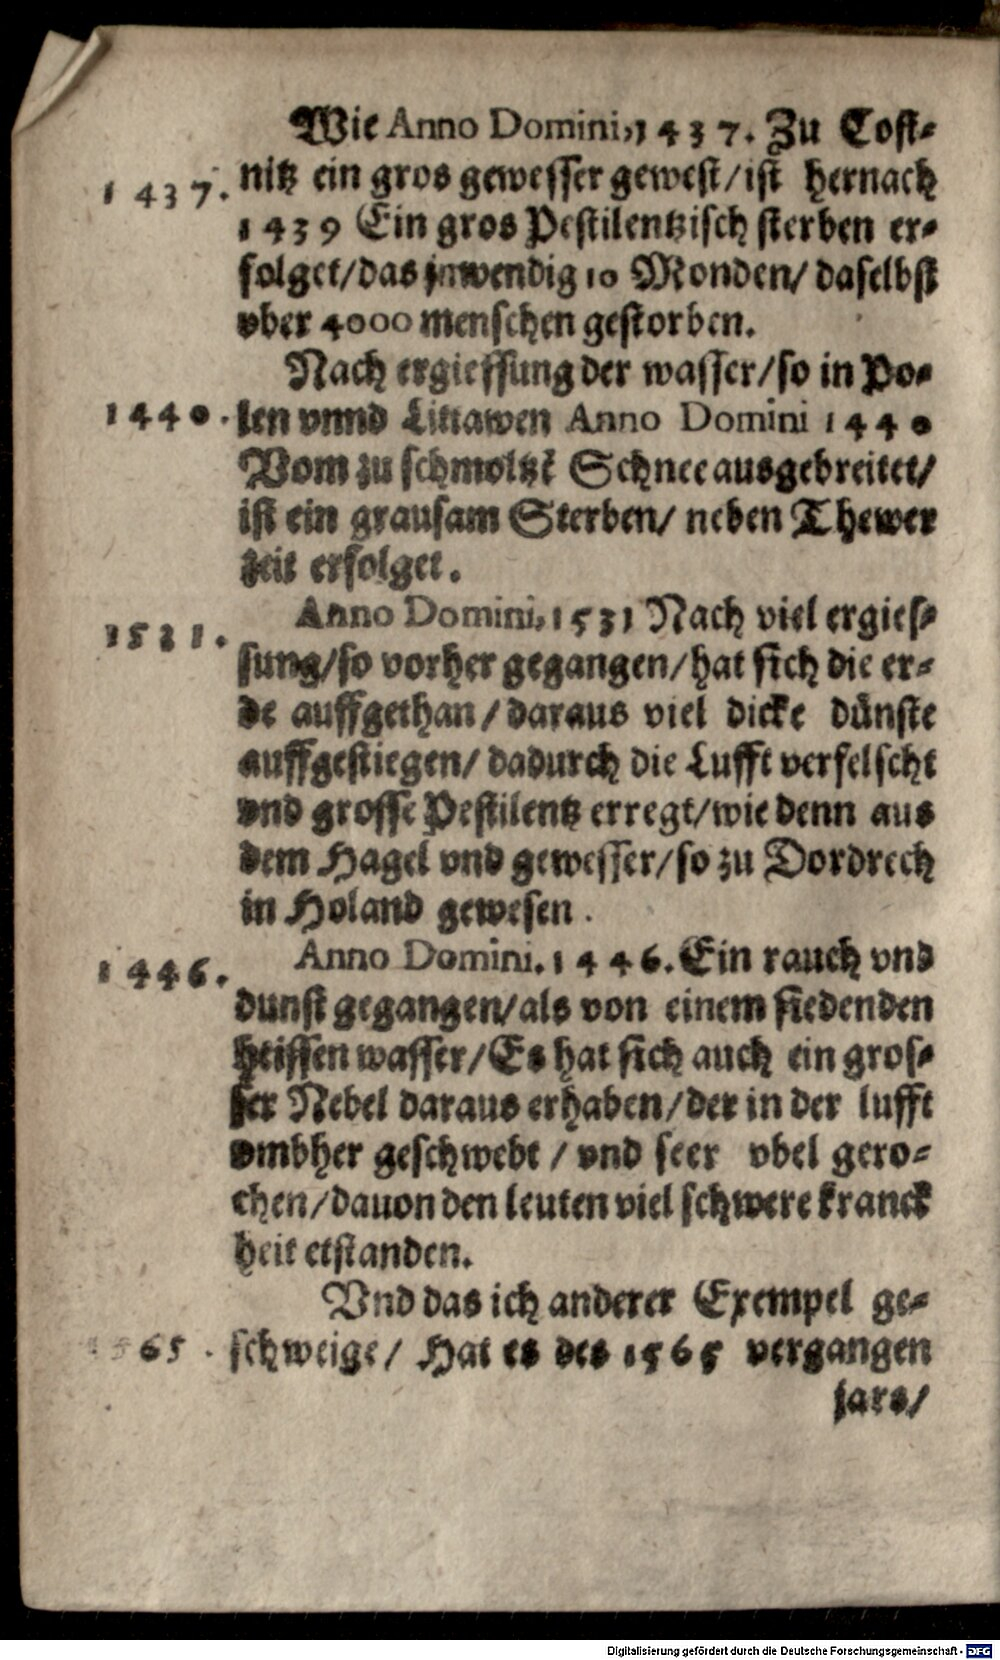 Wie Anno Domini, 1437. Zu Cost⸗
1437. nitz ein gros gewesser gewest/ ist hernach
1439 Ein gros Pestilentzisch sterben er⸗
folget/ das inwendig 10 Monden/ daselbst
vber 4000 menschen gestorben.
Nach ergiessung der wasser/ so in Po⸗
1440. len vnnd Littawen Anno Domini 1440
Vom zu schmoltzt Schnee ausgebreitet/
ist ein grausam Sterben/ neben Thewer
zeit erfolget.
Anno Domini, 1531 Nach viel ergies⸗
1531. sung/ so vorher gegangen/ hat sich die er⸗
de auffgethan/ daraus viel dicke dünste
auffgestiegen/ dadurch die Lufft verfelscht
vnd grosse Pestilentz erregt/ wie denn aus
dem Hagel vnd gewesser/ so zu Dordrech
in Holand gewesen.
Anno Domini. 1446. Ein rauch vnd
1446. dunst gegangen/ als von einem siedenden
heissen wasser/ Es hat sich auch ein gros⸗
ser Nebel daraus erhaben/ der in der lufft
vmbher geschwebt/ vnd seer vbel gero⸗
chen/ dauon den leuten viel schwere kranck
heit etstanden.
Vnd das ich anderer Exempel ge⸗
1565. schweige/ Hat es des 1565 vergangen
jars/
Digitalisierung gefördert durch die Deutsche Forschungsgemeinschaft - DFG